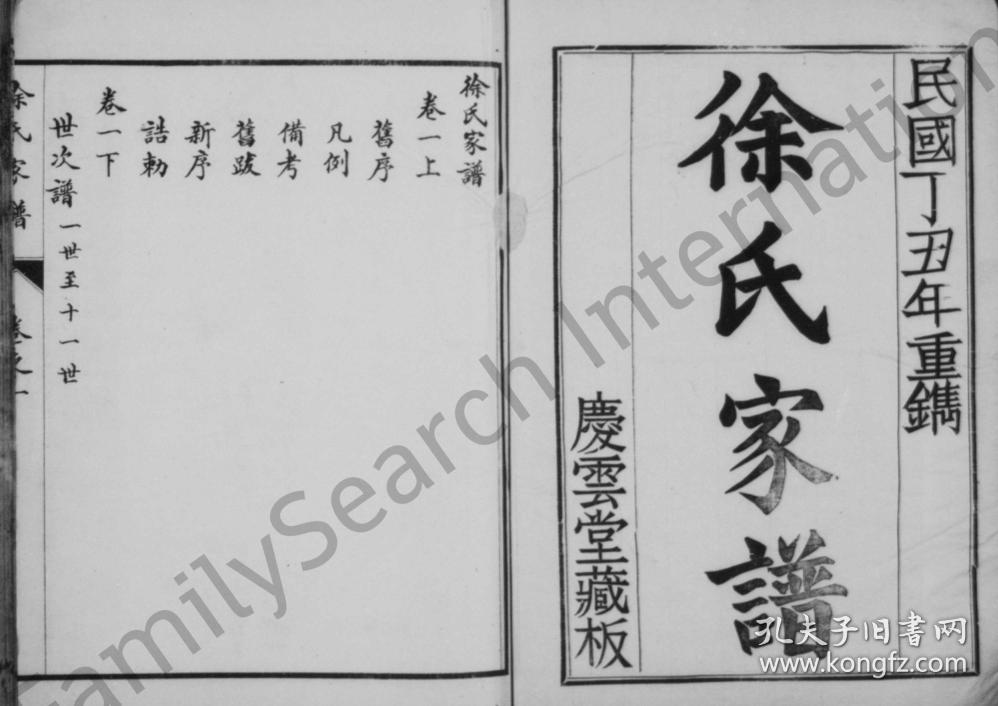 民國丁丑年重鐫
徐氏家譜
慶雲堂藏板
徐氏家譜
卷一上
舊序
凡例
備考
舊跋
新序
誥勅
卷一下
世次譜 一世至十一世
徐氏家譜 卷之一
FamilySearch International
孔夫子旧书网
www.kongfz.com